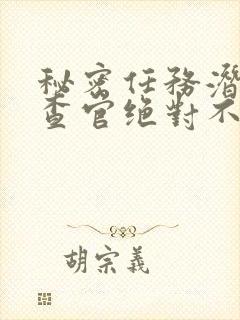 秘密任務潛
查官绝對不
胡宗義